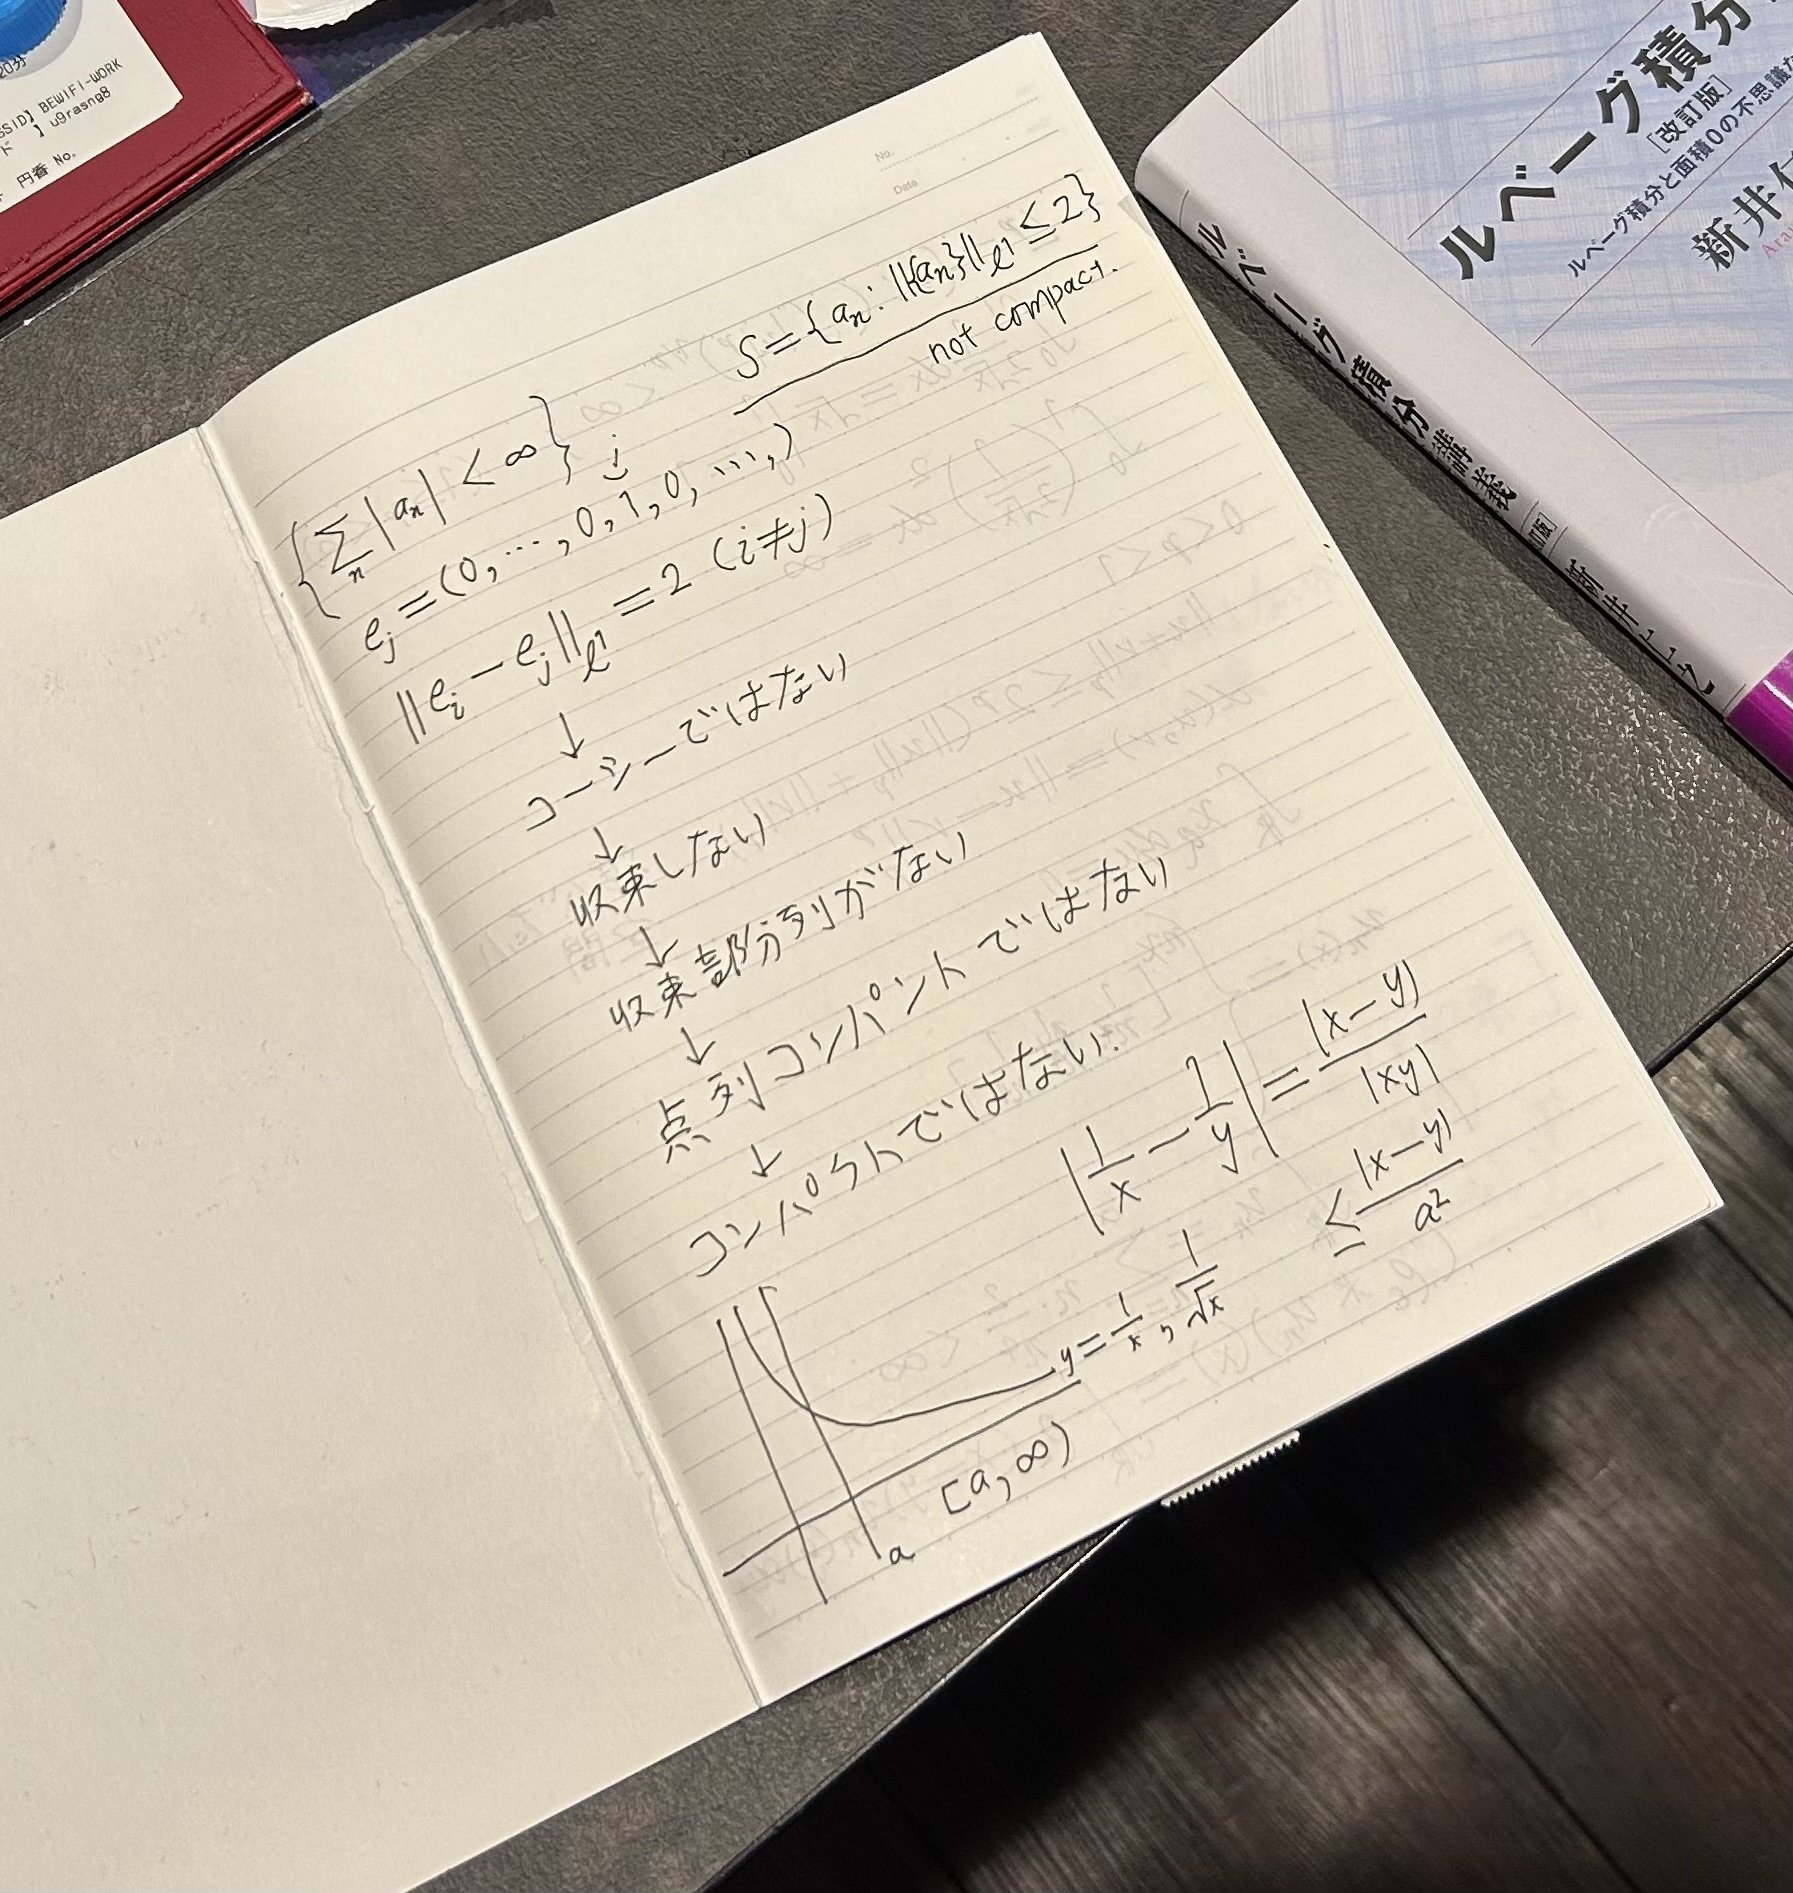 20分
SSID】BEWIFI-WORK
ド 】u9rasng8
円番 No.
No.
Date
S={aₙ: ||{aₙ}||ℓ¹≤2}
not compact.
{∑ₙ|aₙ|<∞}
j
eⱼ=(0,…,0,1,0,…,)
||eᵢ-eⱼ||ℓ¹=2 (i≠j)
↓
コーシーではない
↓
収束しない
↓
収束部分列がない
↓
点列コンパントではない
↓
コンパクトではない.
|1/x-1/y|=|x-y|/|xy|
≤|x-y|/a²
y=1/x, 1/√x
[a,∞)
a
ルベーグ積分
[改訂版]
ルベーグ積分と面積0の不思議な
新井仁
Ara
ルベーグ積分講義
新井仁之